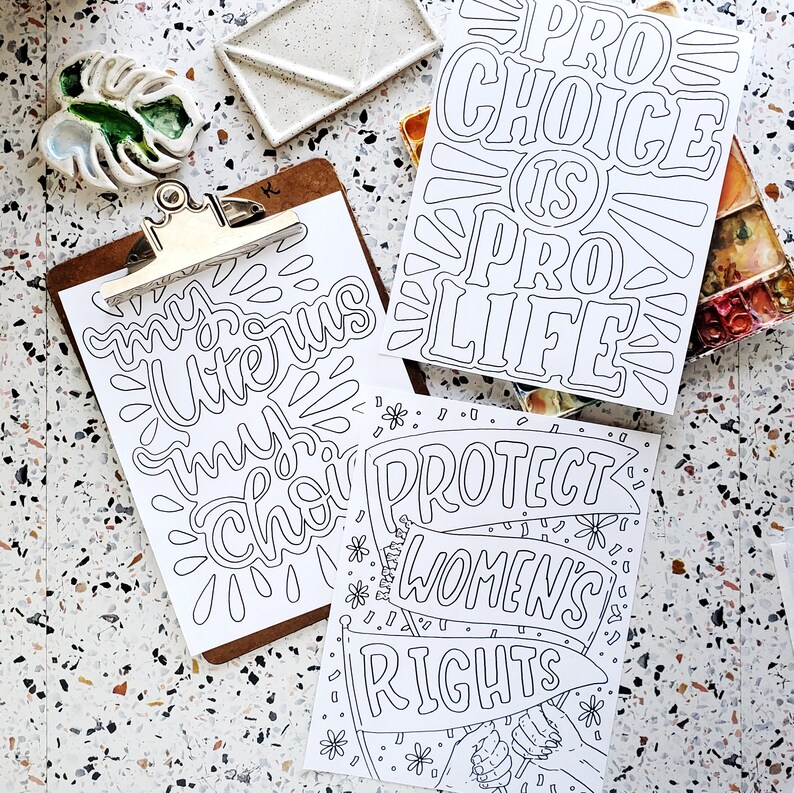 PRO
CHOICE
IS
PRO
LIFE
K
my
Uterus
my
Choi
PROTECT
WOMEN'S
RIGHTS